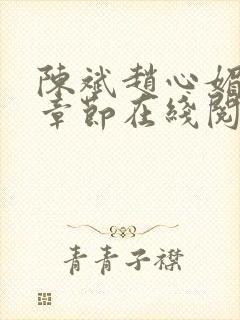 陳斌趙心媚
章節在綫閱
青青子襟